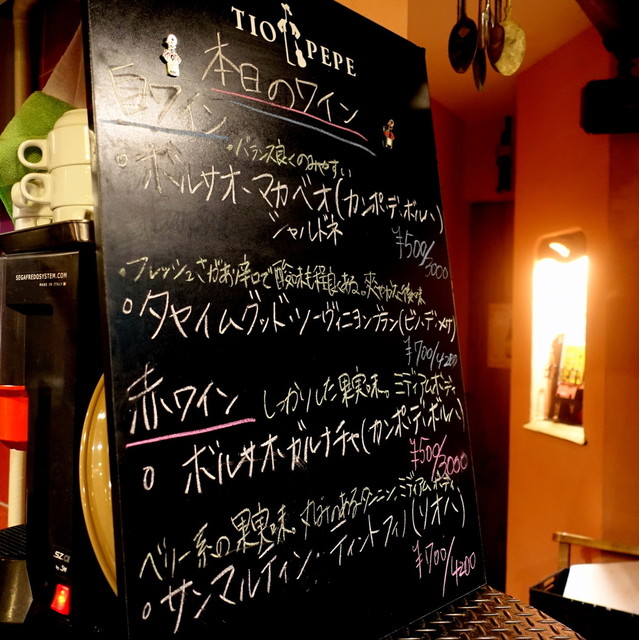 TIO PEPE
本日のワイン
白ワイン
。バランス良くのみやすい
。ボルサオ・マカベオ(カンポ・デ・ボルハ)
シャルドネ
¥500/3000
・フレッシュさがあり辛口で酸味も程良くある。爽やかな後味
。タヤイムグッド・ソーヴィニヨンブラン(ビノ・デ・メサ)
¥700/4200
赤ワイン
しっかりした果実味。ミディアムボディ。
。ボルサオ・ガルナチャ(カンポ・デ・ボルハ)
¥500/3000
ベリー系の果実味、丸みのあるタンニン、ミディアムボディ
。サンマルティン・ティントフィノ(リオハ)
¥700/4200
SEGAFREDOSYSTEM.COM
MADE IN ITALY